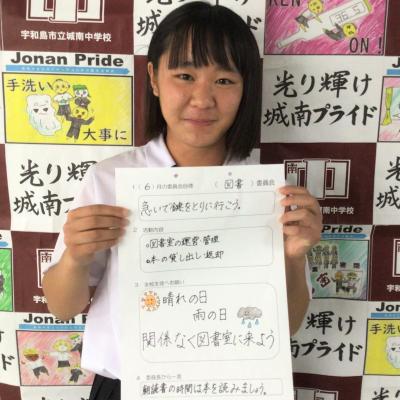 宇和島市立城南中学校
Jonan Pride
手洗い
大事に
光り輝け
城南プライド
ON!
光り輝け
城南プライド
1 (6)月の委員会目標 (図書)委員会
急いで鍵をとりに行こう。
2 活動内容
図書室の運営・管理
本の貸し出し・返却
3 全校生徒へお願い
晴れの日
雨の日
関係なく図書室に来よう
4 委員長から一言
朝読書の時間は本を読みましょう。
光り輝け
城南プライド
城南中学校
Jonan Pride
光り輝け
城南プライド
Jonan
手洗い